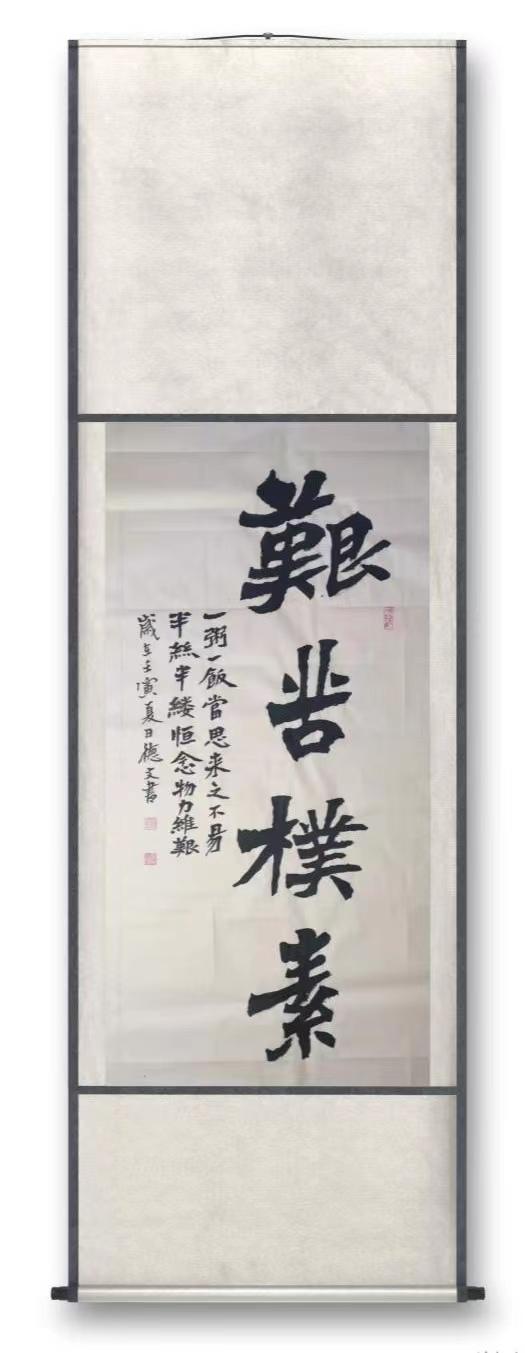 艱苦樸素
一粥一飯當思来之不易
半絲半縷恒念物力維艱
歲在壬寅夏日德文書